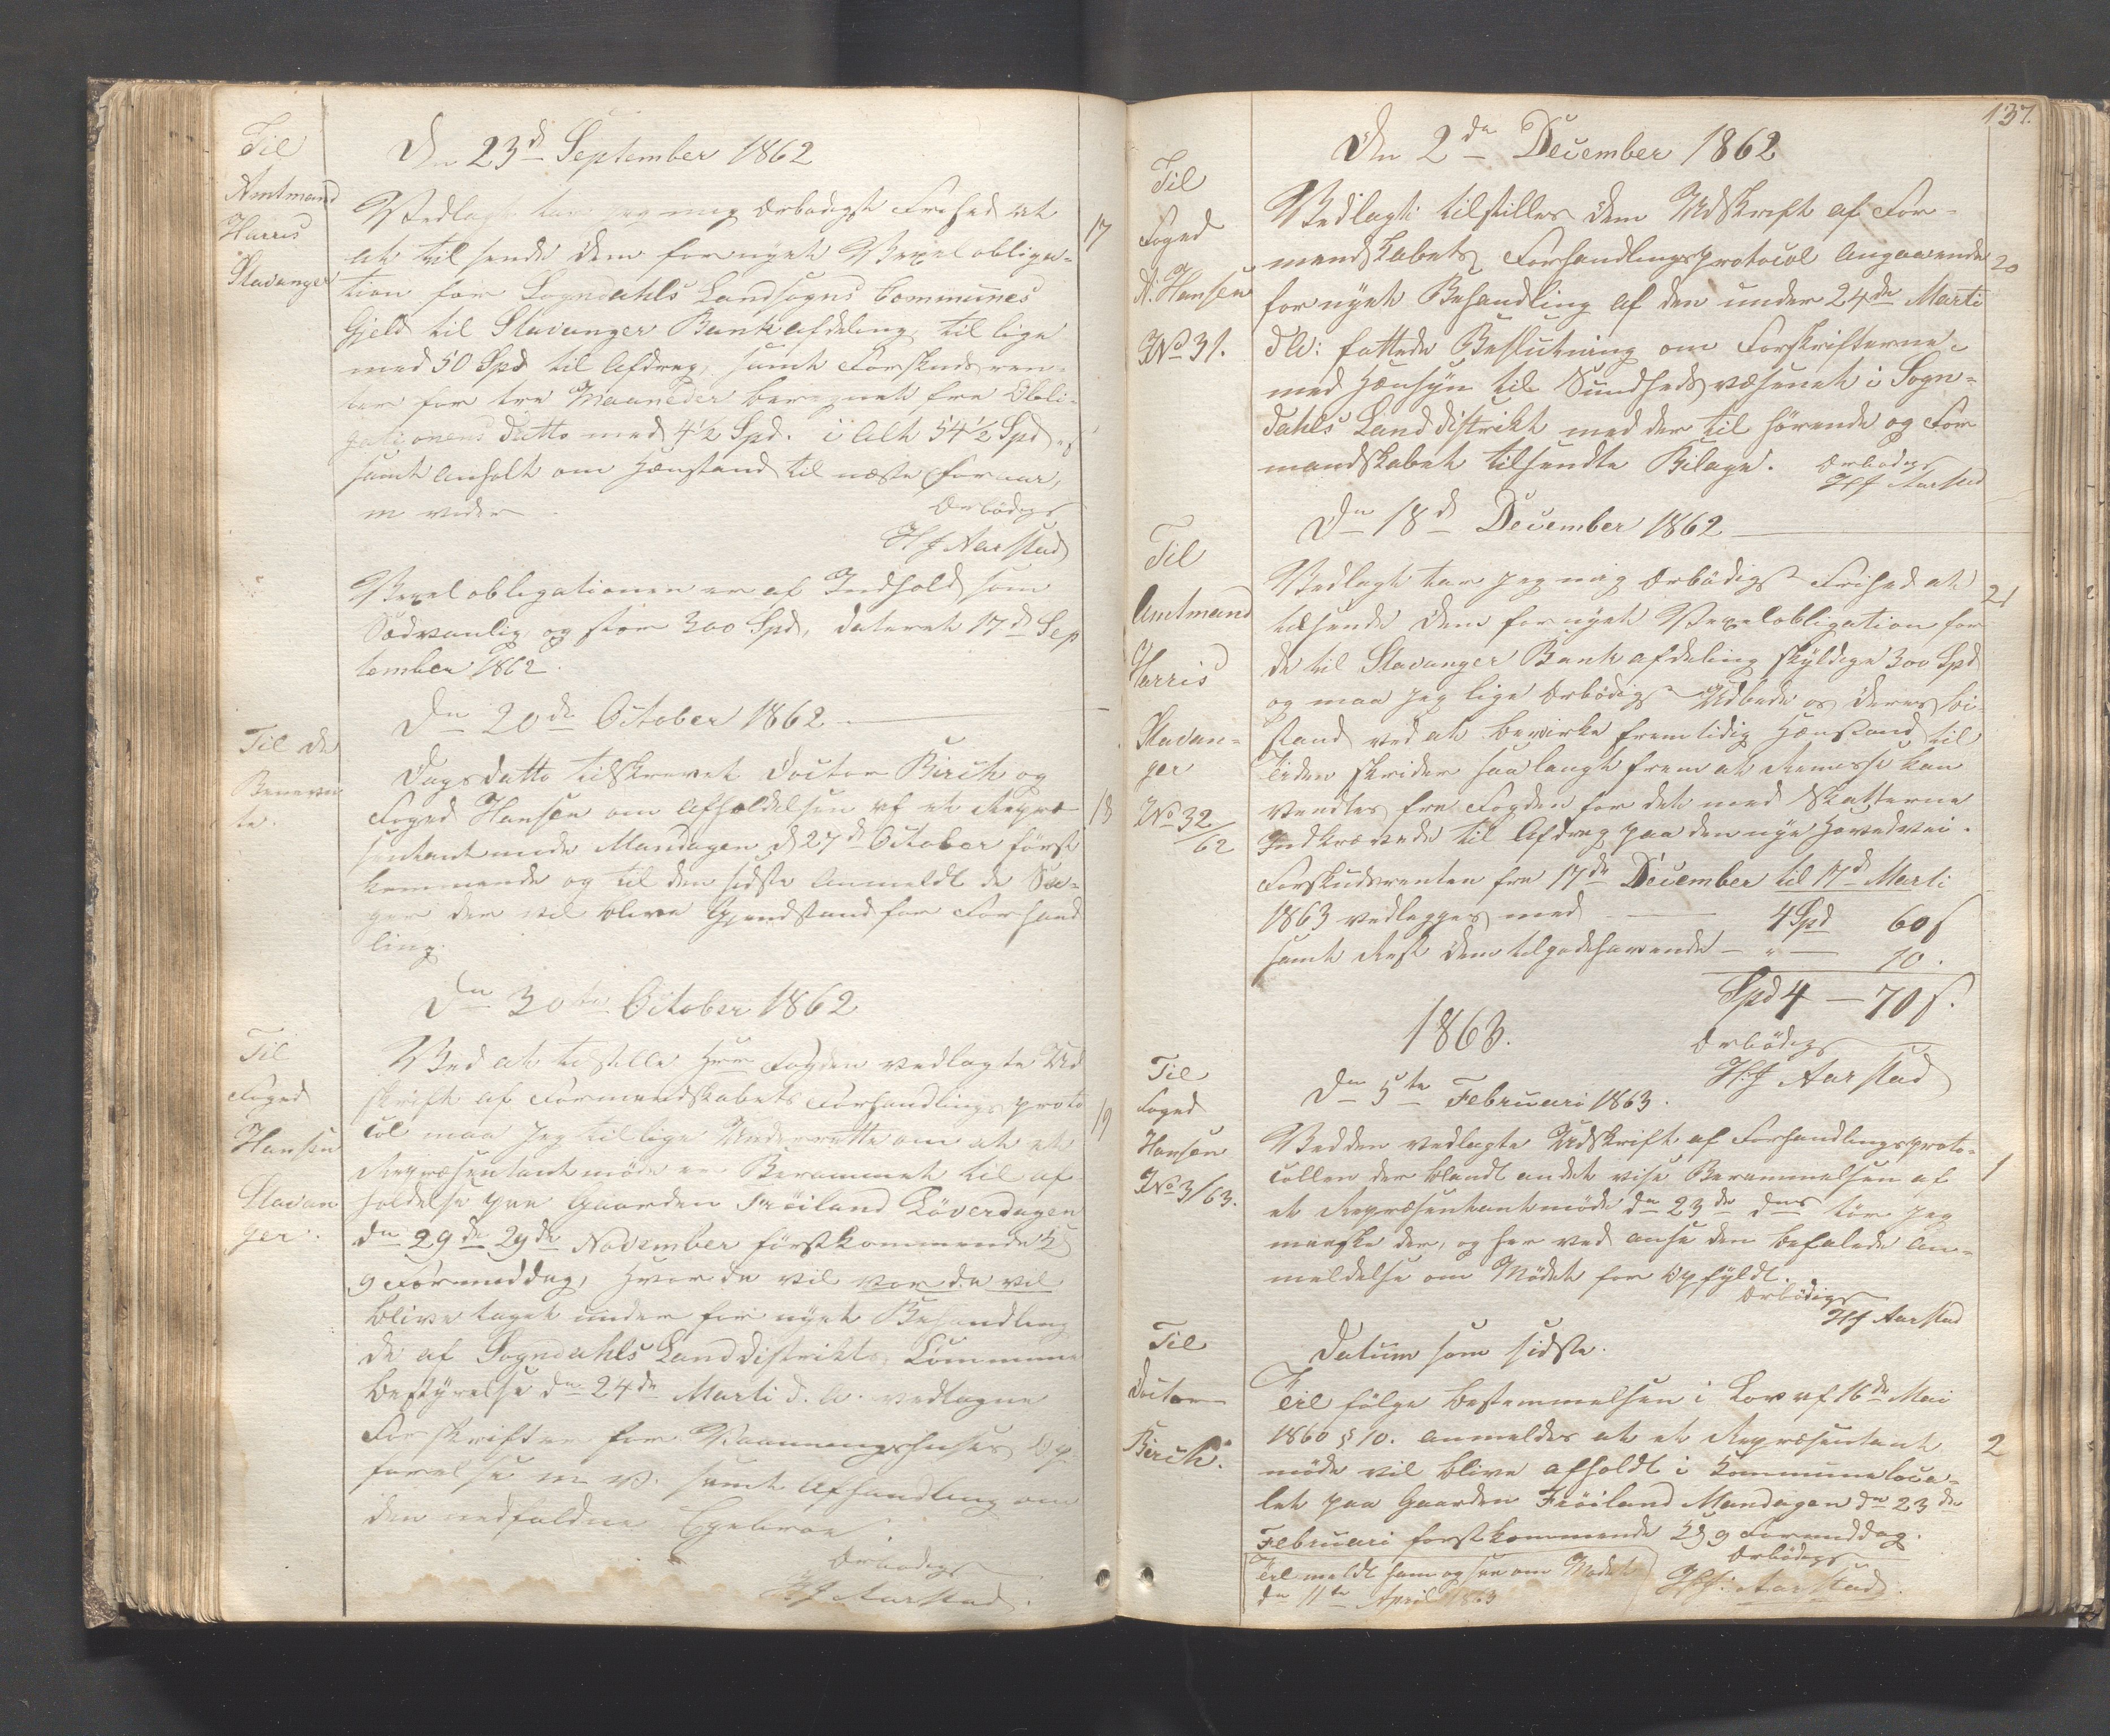 Til
Amtmand
Harris
Stavanger
Den 23d September 1862
Vedlagt tar jeg mig ærbødigst Frihed at
at tilsende Dem fornyet Vexelobliga-
tion for Sogndahls Landsogns Communes
Gjeld til Stavanger Bankafdeling, tillige
med 50 Spd til Afdrag, samt Forskudsren-
ter for tre Maaneder beregnet fra Obli-
gationens Datto med 4½ Spd. i Alt 54½ Spd
samt anholt om Henstand til næste Foraar,
m vider
Ærbødigst
HJ Aarstad
17
Vexelobligationen er af Indhold som
Sædvanlig og stor 300 Spd, dateret 17d Sep
tember 1862.
Den 20de October 1862
Til de
Benevn
te.
Dagsdatto tilskrevet Doctor Birch og
Foged Hansen om Afholdelsen af et Repræ
sentantmøde Mandagen d 27d October først
kommende og til den sidste Anmeldt de Sa-
ger der vil blive Gjenstand for Forhand
ling.
18
Den 30te October 1862
Til
Foged
Hansen
Stavan
ger.
Ved at tilstille Herr Fogden vedlagte Ud
skrift af Formandskabets Forhandlings proto
col maa Jeg tillige Underrette om at et
Repræsentantmøde er Berammet til af
holdelse paa Gaarden Frøiland Løverdagen
den 29de 29de November førstkommende Kl
9 Formiddag, hvor da vil vor da vil
blive taget under fornyet Behandling
de af Sogndahls Landdistrikts Kommune
bestyrelse den 24de Marti d. A. vedtagne
Forskrifter for Vaaningshuses Op
førelse m v. samt Afhandling om
den nedfaldne Egebroe.
Ærbødigst
HJ Aarstad.
19
137.
Den 2den December 1862
Til
Foged
A. Hansen
No 31.
Vedlagt tilstilles Dem Udskrift af For-
mandskabets Forhandlingsprotocol Angaaende
fornyet Behandling af den under 24de Marti
d A: fattede Beslutning om Forskrifterne
med Hensyn til Sundhedsvæsenet i Sogn-
dahls Landdistrikt med der til hørende og For
mandskabet tilsendte Bilage.
Ærbødigst
HJ Aarstad
20
Den 18d December 1862
Til
Amtmand
Harris
Stavan-
ger
No 32/62
Vedlagt tar Jeg mig Ærbødigst Frihed at
tilsende Dem fornyet Vexelobligation for
de til Stavanger Bankafdeling skyldige 300 Spd
og maa Jeg lige Ærbødigst Udbede os Deres bi-
stand ved at bevirke fremtidig Henstand til
Tiden skrider saa langt frem at Remesse kan
ventes fra Fogden for det med Skatterne
Indkrævede til Afdrag paa den nye Hovedvei.
Forskudsrenten fra 17de December til 17d Marti
1863 vedlegges med 4 Spd 60 s
samt Rest Dem tilgodehavende - " - 10.
Spd 4 - 70 s.
Ærbødigst
H.J Aarstad
21
1863.
Den 5te Februari 1863.
Til
Foged
Hansen
No 3/63.
Ved den vedlagte Udskrift af Forhandlingsproto-
collen der blandt andet vise Berammelsen af
et Repræsentantmøde den 23de dns tør Jeg
maaske der, og her ved anse den befalede An-
meldelse om Mødet for Opfyldt.
Ærbødigst
HJ Aarstad
1
Datum som sidste.
Til
Doctor
Birch.
Til følge bestemmelsen i Lov af 16de Mai
1860 § 10. anmeldes at et Repræsentant
møde vil blive afholdt i Kommuneloca-
let paa Gaarden Frøiland Mandagen den 23de
Februari førstkommende Kl 9 Formiddag.
Ærbødigst
HJ. Aarstad.
2
Til meldt ham ogsaa om Mødet
den 11te April 1863